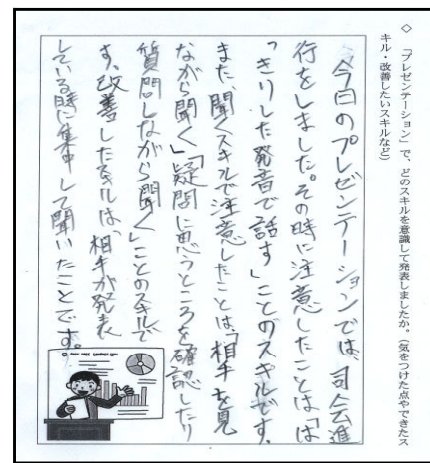 ◇ 「プレゼンテーション」で、どのスキルを意識して発表しましたか。（気をつけた点やできたス
キル・改善したいスキルなど）
今日のプレゼンテーションでは、司会進
行をしました。その時に注意したことは「は
っきりした発音で話す」ことのスキルです。
また、聞くスキルで注意したことは、「相手を見
ながら聞く」「疑問に思うところを確認したり
質問しながら聞く」ことのスキルで
す。改善したスキルは、相手が発表
している時に集中して聞いたことです。